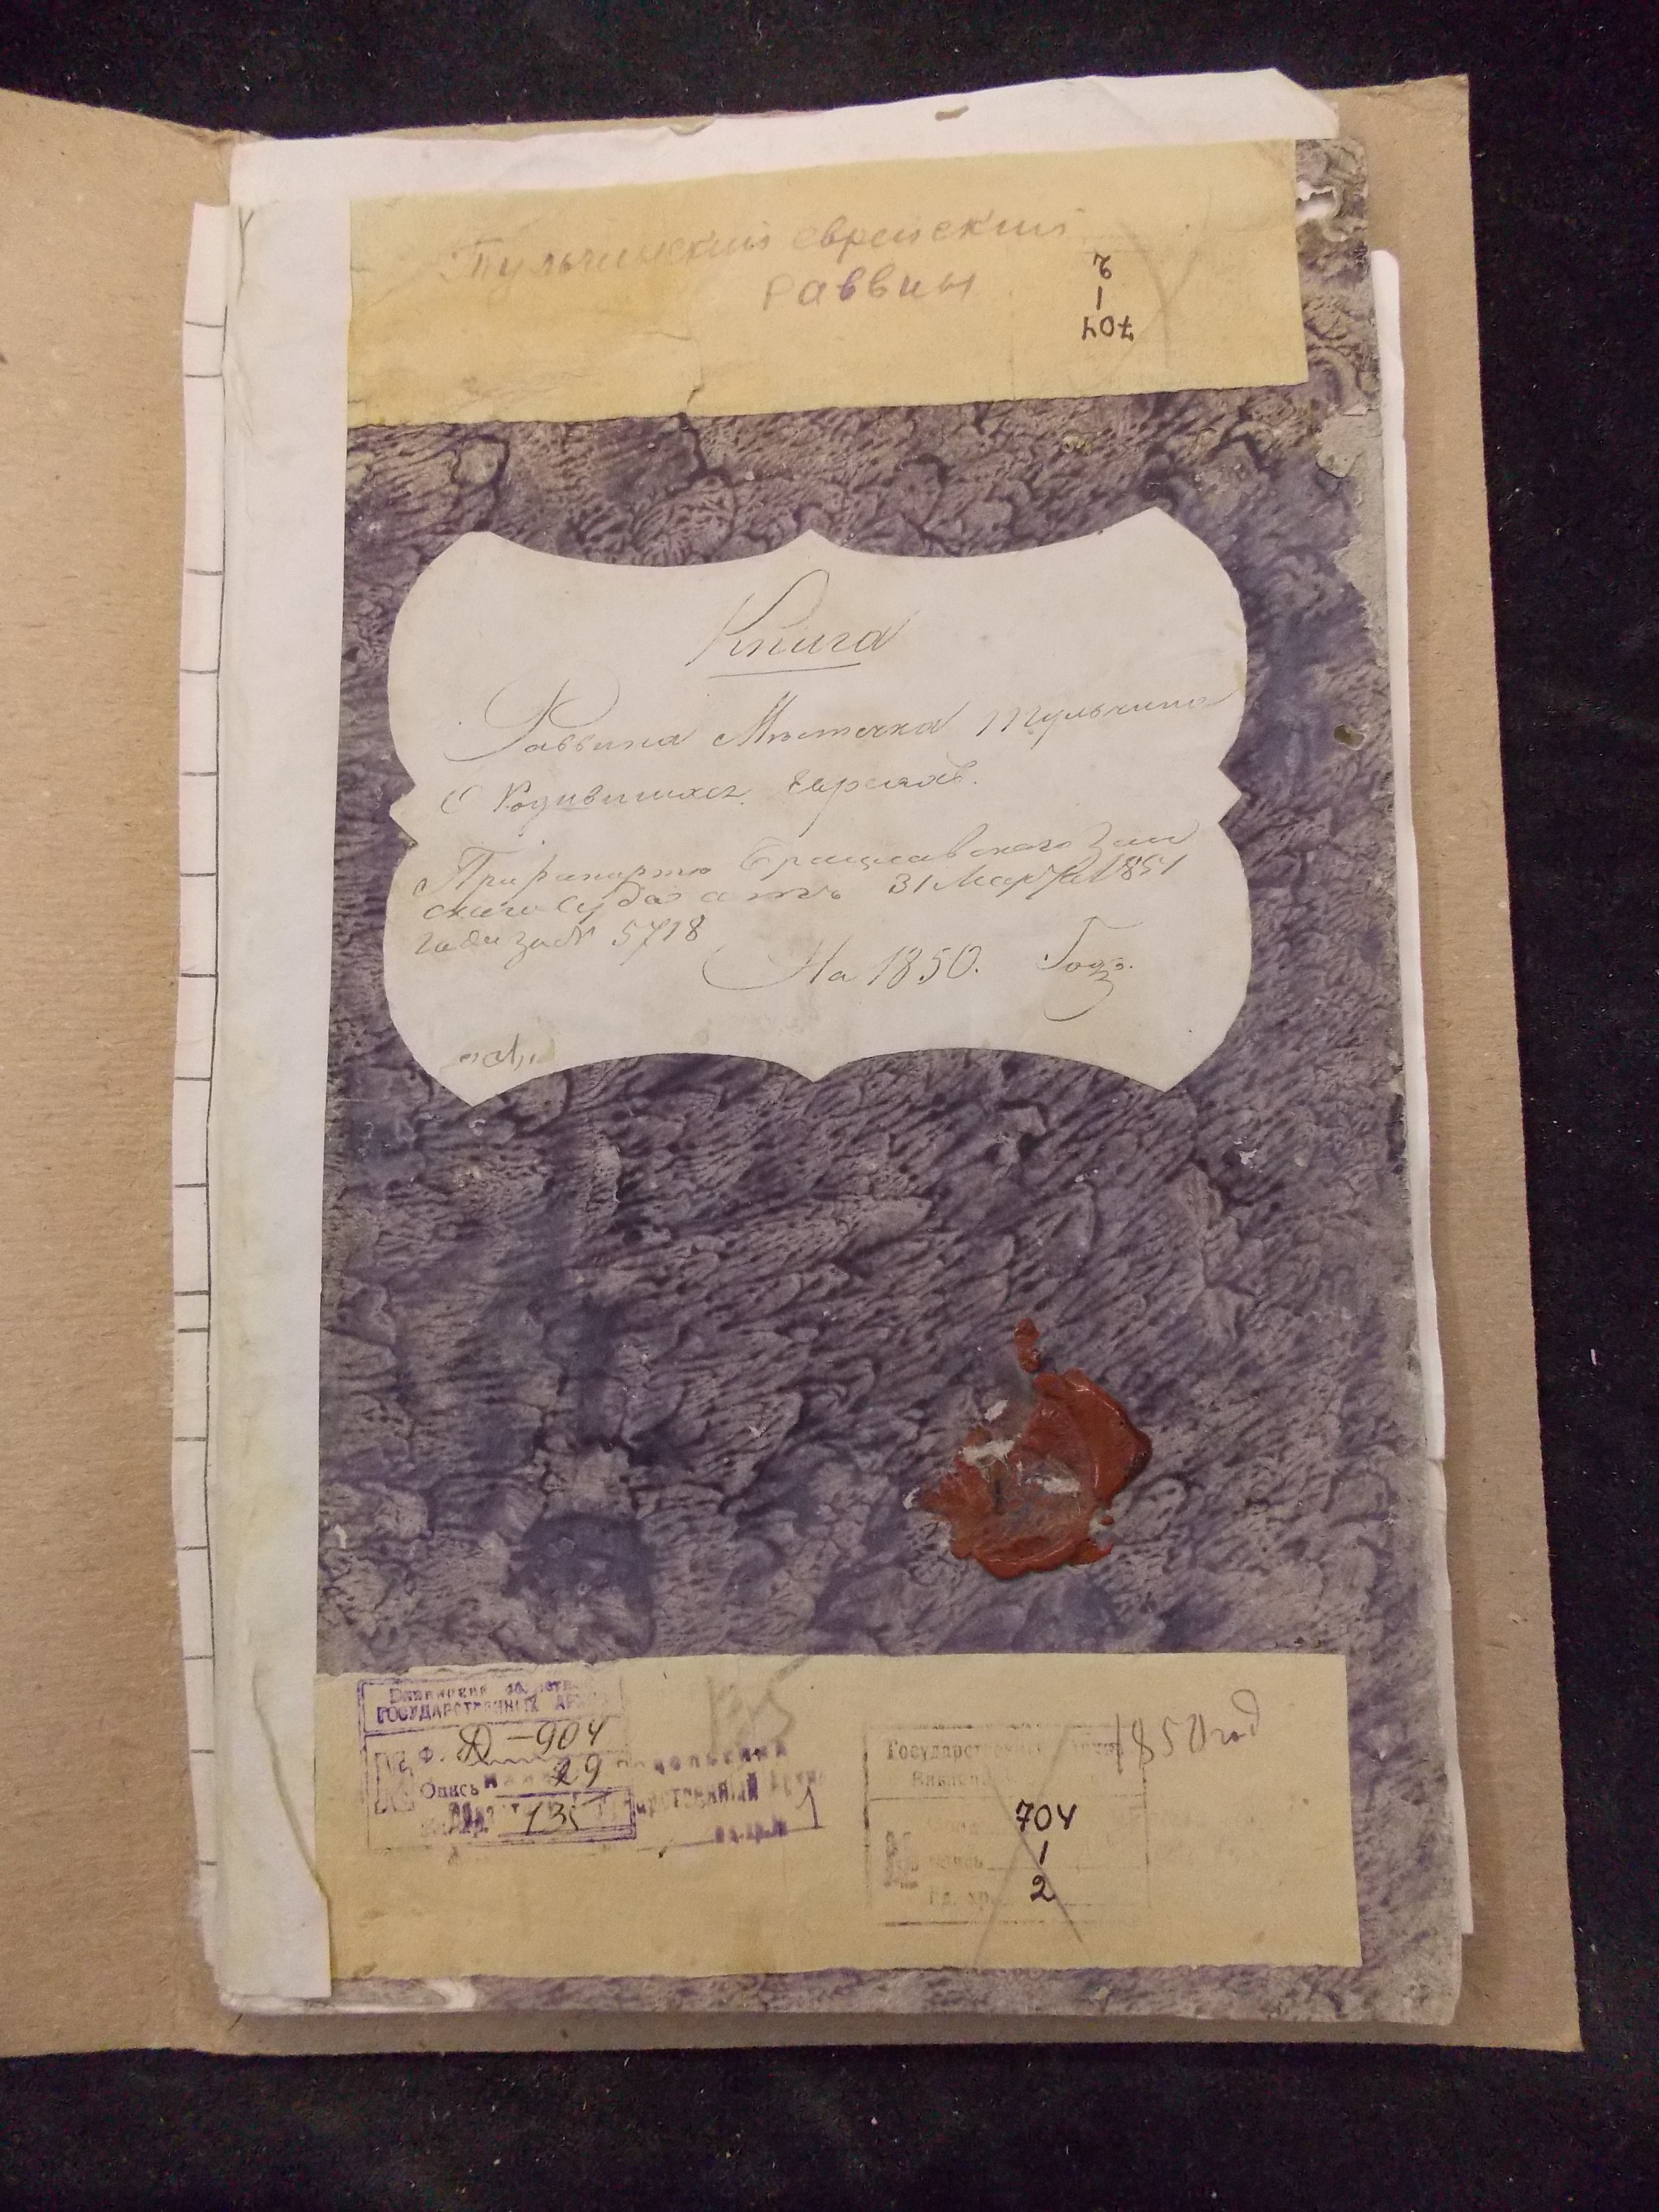 Тульчинский еврейский
раввин
704
1
2
Книга
Раввина Мѣстечка Тульчина
О Родившихся Евреяхъ.
При рапортѣ Брацлавского Зем
ского суда отъ 31 Марта 1851
года за № 5718
На 1850. Годъ.
ГОСУДАРСТВЕННЫЙ АРХИВ
Ф. Д-904
Опись 29
135
1850 год
Государственный Архив
704
1
2